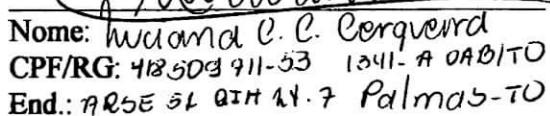 Nome: Luciana C. C. Cerqueira
CPF/RG: 418509911-53 1341-A OAB/TO
End.: ARSE 51 QIH Lt. 7 Palmas-TO